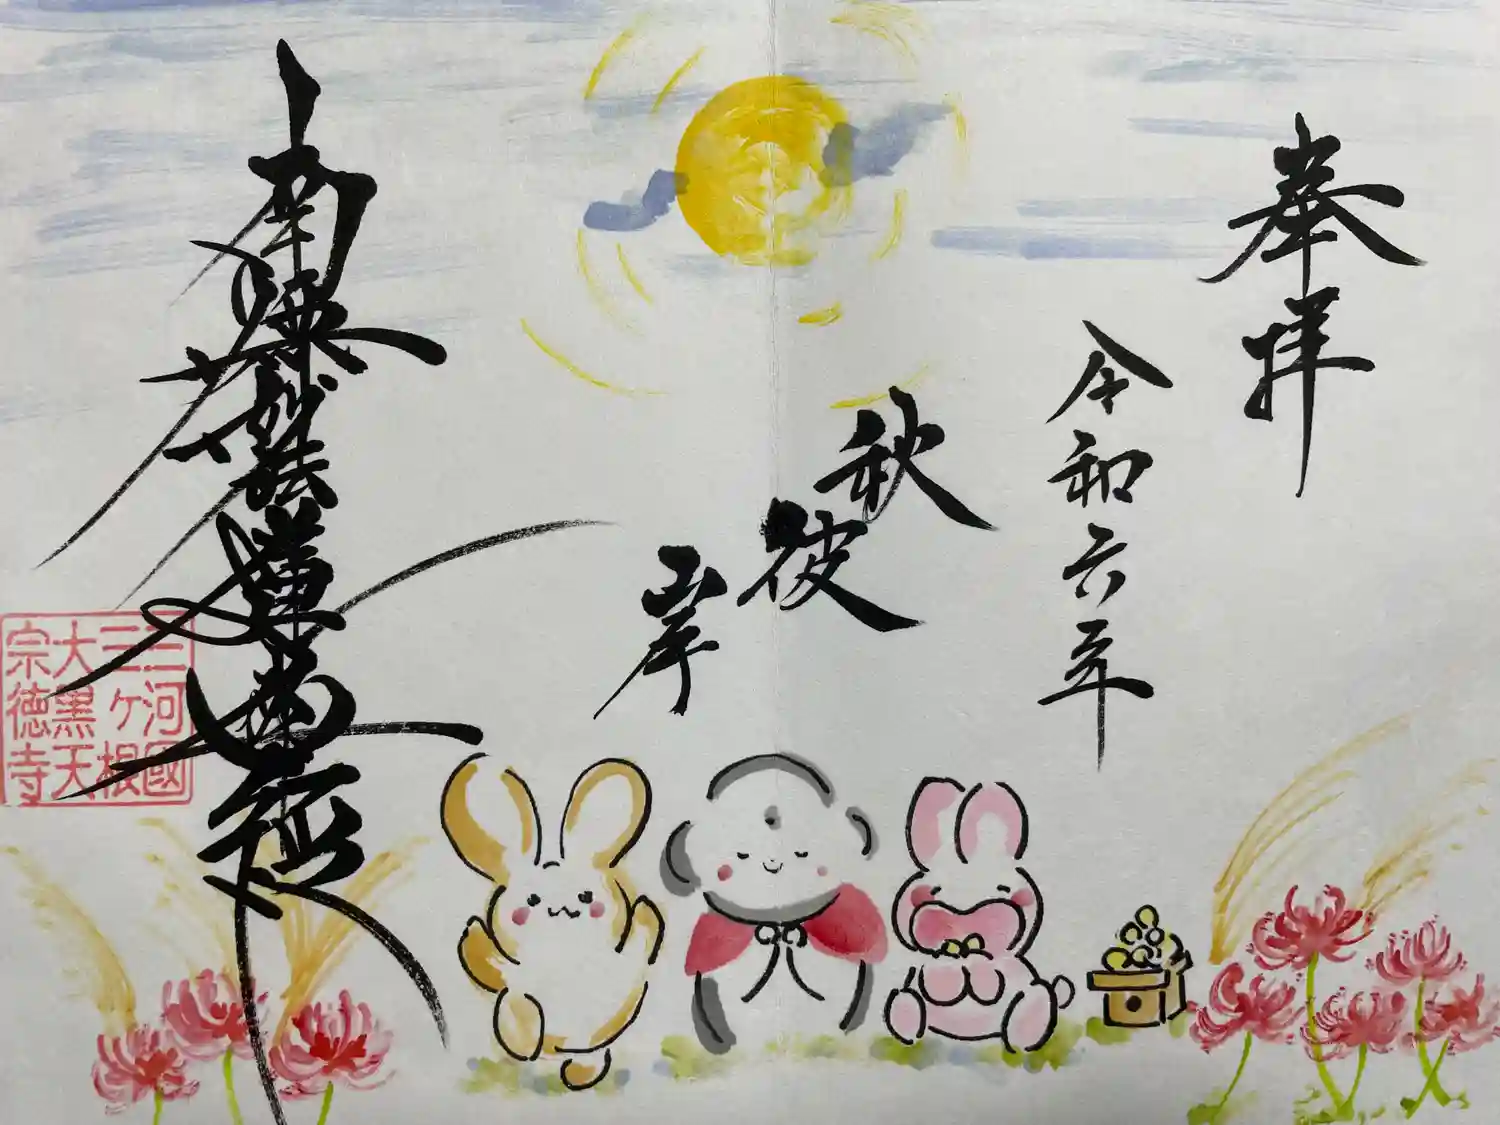 奉拝
令和六年
秋彼岸
南無妙法蓮華経
三河國
三ヶ根
大黒天
宗徳寺